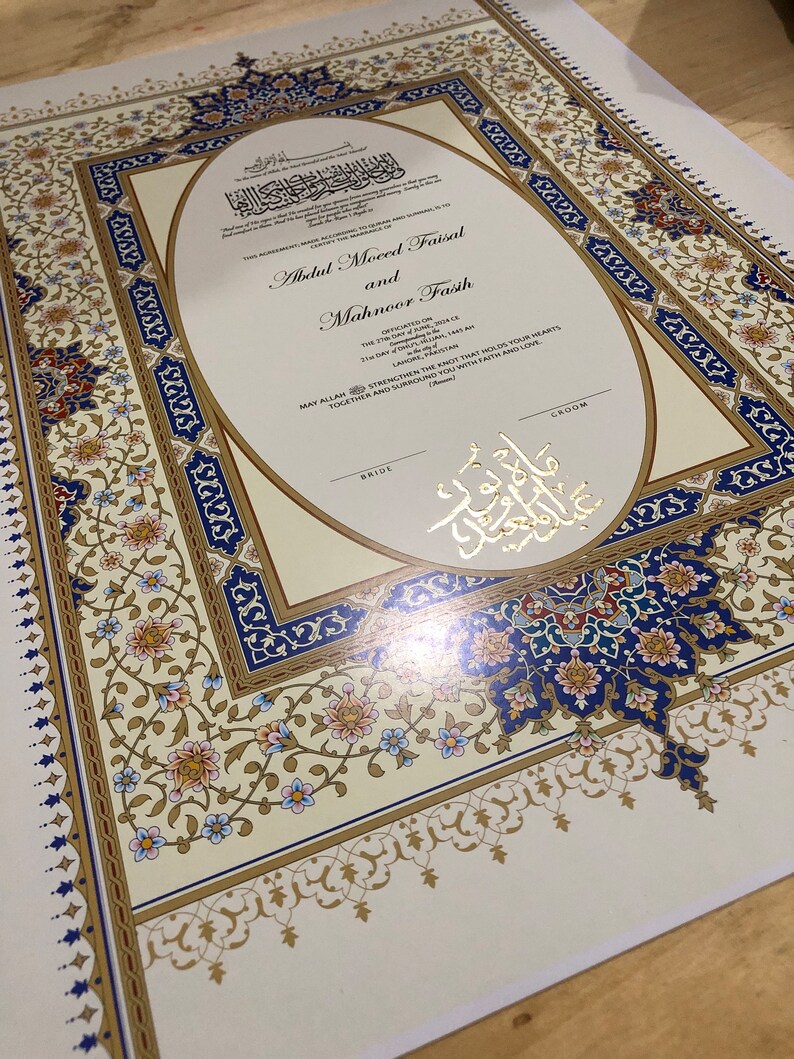 بسم الله الرحمن الرحيم
"In the name of Allah, the Most Gracious and the Most Merciful"
"And one of His signs is that He created for you spouses from among yourselves so that you may
find comfort in them. And He has placed between you compassion and mercy. Surely in this are
signs for people who reflect"
Surah Ar-Rum | Ayah 21
THIS AGREEMENT; MADE ACCORDING TO QURAN AND SUNNAH, IS TO
CERTIFY THE MARRAIGE OF
Abdul Moeed Faisal
and
Mahnoor Fasih
OFFICIATED ON
THE 27th DAY of JUNE, 2024 CE
Corresponding to the
21st DAY of DHU'L HIJJAH, 1445 AH
in the city of
LAHORE, PAKISTAN
MAY ALLAH ﷻ STRENGTHEN THE KNOT THAT HOLDS YOUR HEARTS
TOGETHER AND SURROUND YOU WITH FAITH AND LOVE.
(Ameen)
BRIDE
GROOM
ماه نور
و
عبدالمعید